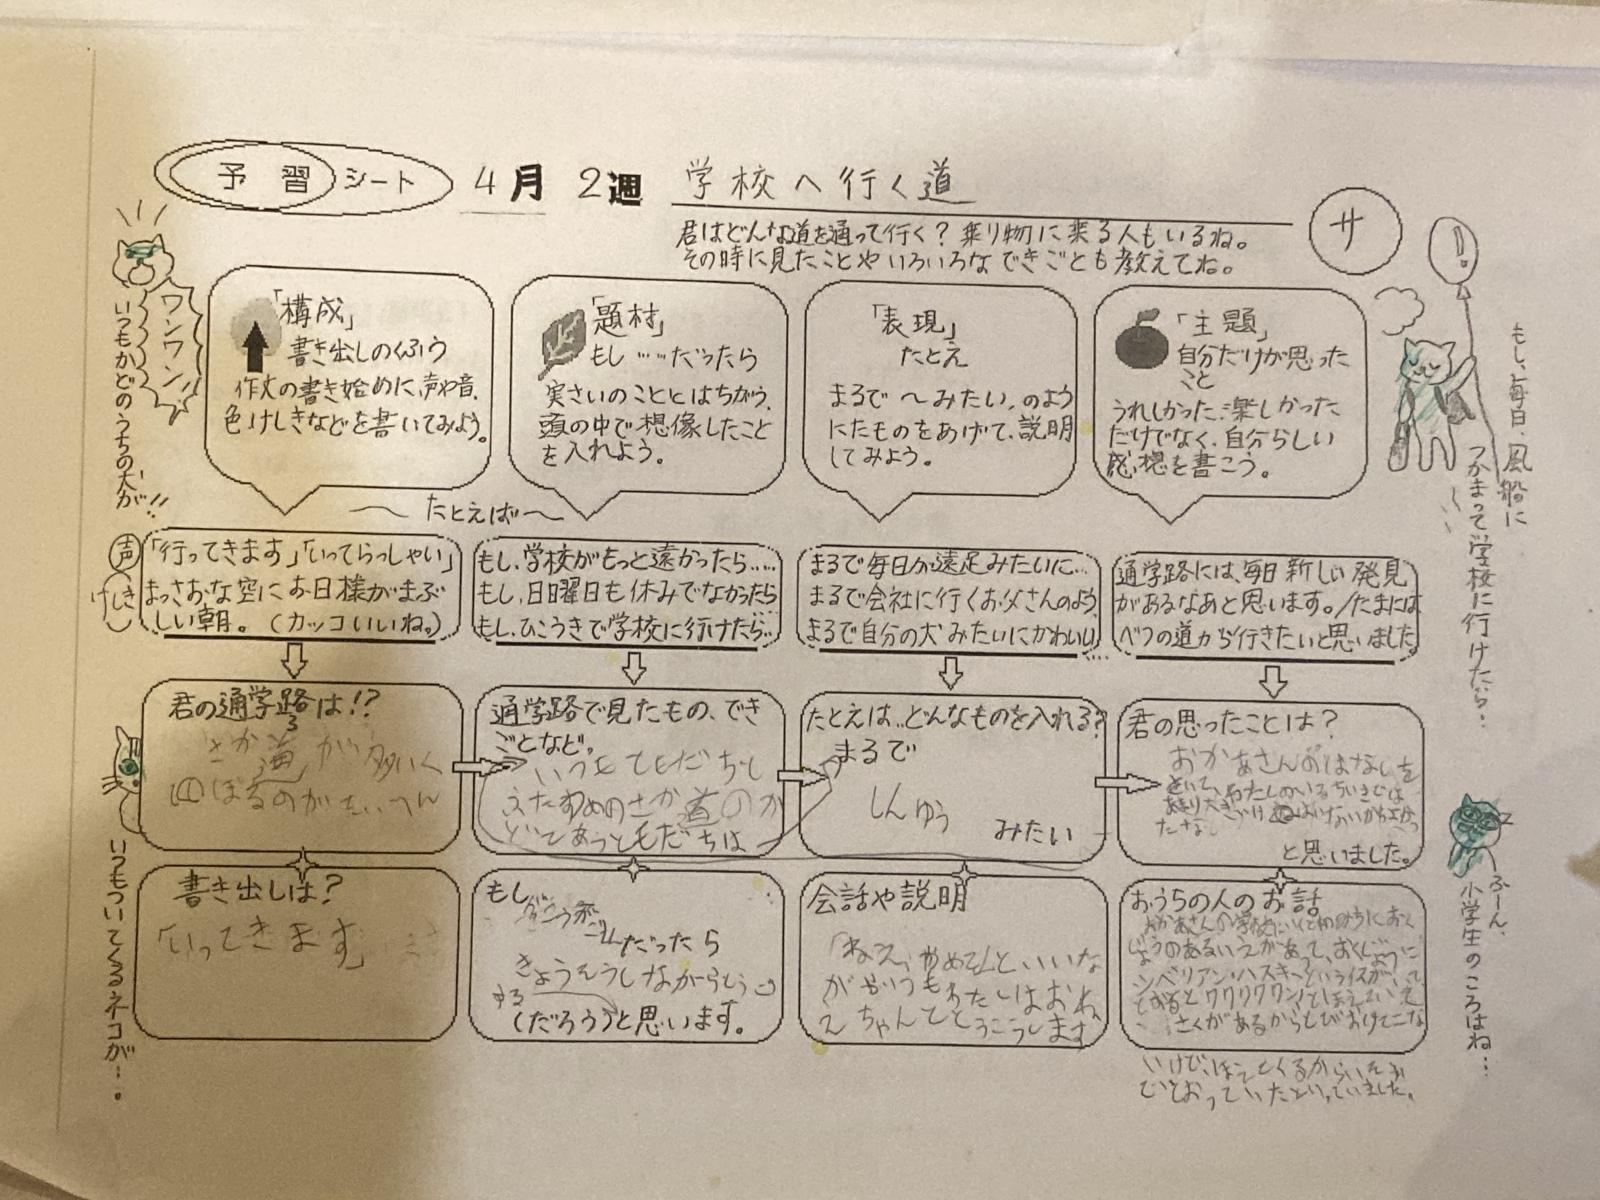 予習シート 4月 2週 学校へ行く道
サ
君はどんな道を通って行く？乗り物に来る人もいるね。
その時に見たことやいろいろなできごとも教えてね。
ワンワン
いつもかどのうちの犬が…!!
「構成」
書き出しのくふう
作文の書き始めに、声や音、
色けしきなどを書いてみよう。
「題材」
もし……だったら
実さいのこととはちがう、
頭の中で想像したこと
を入れよう。
「表現」
たとえ
まるで〜みたい、のよう
にたものをあげて、説明
してみよう。
「主題」
自分だけが思った
こと
うれしかった、楽しかった
だけでなく、自分らしい
感想を書こう。
!。
もし、毎日、風船に
つかまって学校に行けたら…
〜たとえば〜
声
けしき
「行ってきます」「いってらっしゃい」
まっさおな空にお日様がまぶ
しい朝。（カッコいいね。）
もし、学校がもっと遠かったら……
もし、日曜日も休みでなかったら
もし、ひこうきで学校に行けたら…
まるで毎日が遠足みたいに…
まるで会社に行くお父さんのよう、
まるで自分の犬みたいにかわいい
….
通学路には、毎日新しい発見
があるなあと思います。/たまには
べつの道から行きたいと思いました
君の通学路は!?
さか道がら多いく
のぼるのがたいへん
通学路で見たもの、でき
ごとなど。
いつもともだちと
ふたつめのさか道のか
どであうともだちは
たとえは…どんなものを入れる？
まるで
しんゆう
みたい
君の思ったことは？
おかあさんのはなしを
きいて、わたしのいるちいきでは
と思いました。
いつもついてくるネコが…。
書き出しは？
「いってきます」
もし
だったら
きょうそうしながらとう
する
（だろう）と思います。
会話や説明
「ねえ、やめてよ」といいな
がらいつもわたしはおね
えちゃんととうこうします
おうちの人のお話
おかあさんの学校にいくとちゅうにおく
じょうのあるいえがあって、おくじょうに
シベリアンハスキーというイヌがいて
とおるとワワワワワン!とほえていて
さくがあるからとびおりてこな
いけど、ほえてくるからいそい
でとおっていたといっていました。
ふーん、
小学生のころはね…